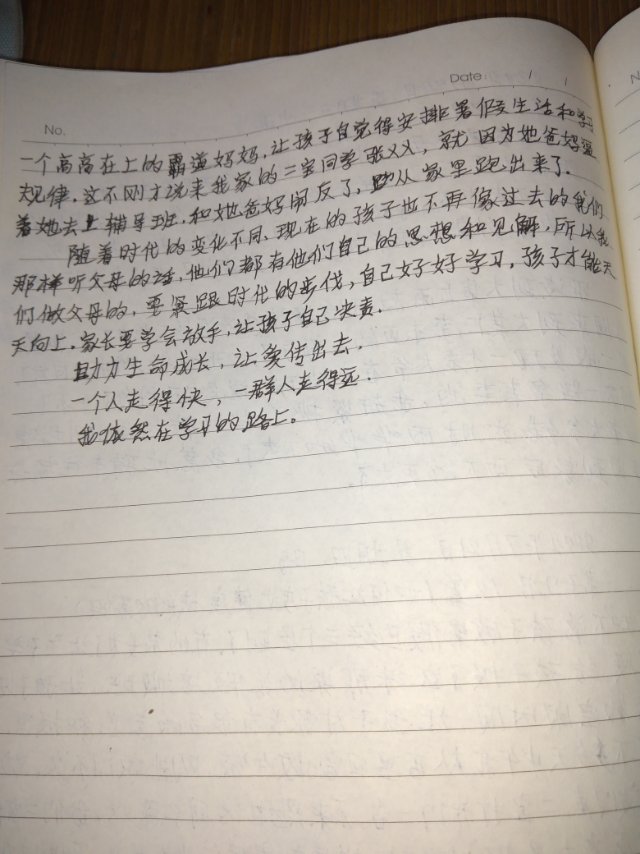 Date: / /
No.
一个高高在上的霸道妈妈，让孩子自觉得安排暑假生活和学习
规律。这不刚才说来我家的三宝同学张义义，就因为她爸妈逼
着她去上辅导班，和她爸妈闹反了，跑从家里跑出来了。
随着时代的变化不同，现在的孩子也不再像过去的我们
那样听父母的话，他们都有他们自己的思想和见解，所以我
们做父母的，要紧跟时代的步伐，自己好好学习，孩子才能天
天向上。家长要学会放手，让孩子自己决责。
助力生命成长，让爱传出去。
一个人走得快，一群人走得远。
我依然在学习的路上。